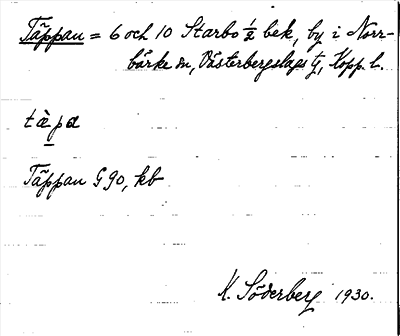 Täppan = 6 och 10 Starbo ½ bek, by i Norr-
bärke sn, Västerbergslags tg, Kopp. l.
tä̀pa
Täppan G 90, kb
K. Söderberg 1930.